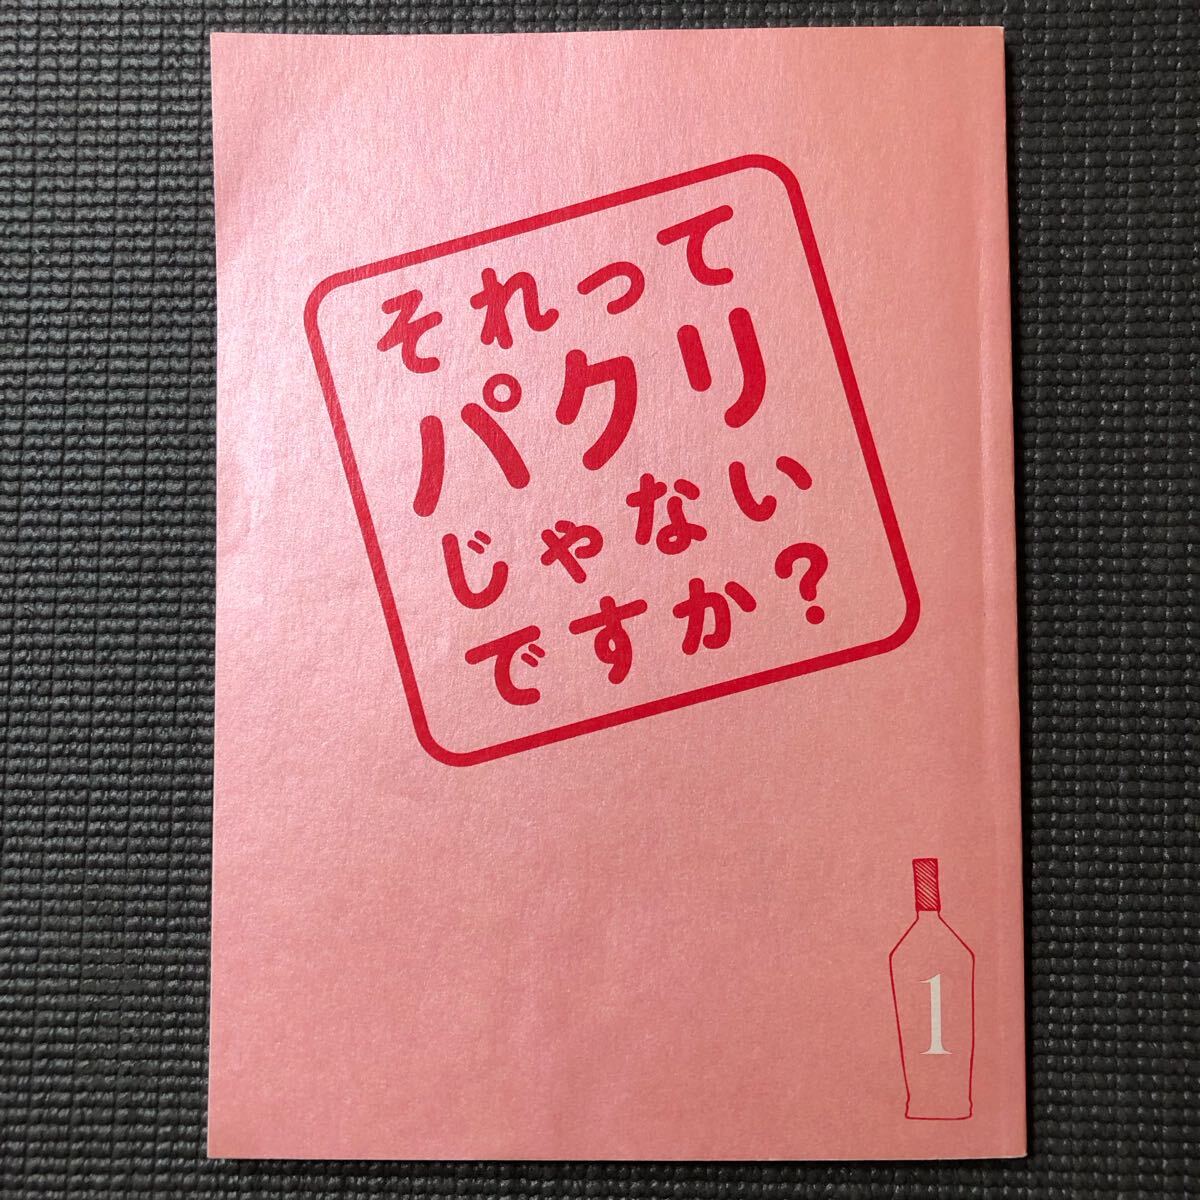 それって
パクリ
じゃない
ですか?
1